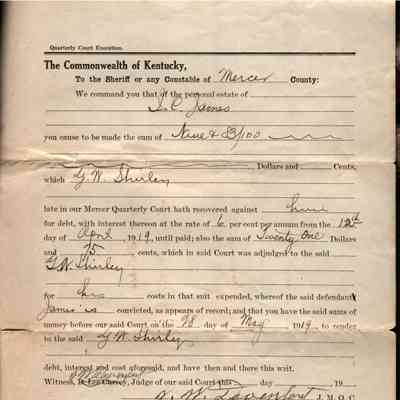 Quarterly Court Execution.
The Commonwealth of Kentucky,
To the Sheriff or any Constable of Mercer County:
We command you that of the personal estate of
James
you cause to be made the sum of Nine & 83/100
Dollars and Cents,
which G. W. Shirley
late in our Mercer Quarterly Court hath recovered against him
for debt, with interest thereon at the rate of 6 per cent per annum from the 12th
day of April, 1919, until paid; also the sum of Twenty One Dollars
and 75 cents, which in said Court was adjudged to the said
G. W. Shirley
for his costs in that suit expended, whereof the said defendant
James is convicted, as appears of record; and that you have the said sums of
money before our said Court on the 28 day of May 1919 to render
to the said G. W. Shirley
debt, interest and cost aforesaid, and have then and there this writ.
Witness, Judge of our Said Court this day 19
J. M. Q. C.